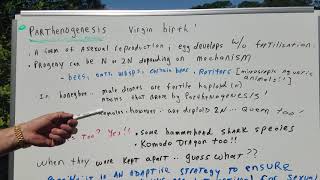 • PARTHENOGENESIS Virgin birth!
• A form of asexual reproduction; egg develops w/o fertilisation.
• Progeny can be N or 2N depending on mechanism
- bees, ants, wasps, certain ... Rotifers [microscopic aquatic animals!]
In honeybee.. male drones are fertile haploid (n)
that arose by Parthenogenesis!
females.. however.. are diploid 2N... Queen too!
Too? Yes!!
• Some hammerhead shark species
• Komodo Dragon too!!
when they were kept apart.. guess what??
is an ADAPTIVE STRATEGY to ENSURE